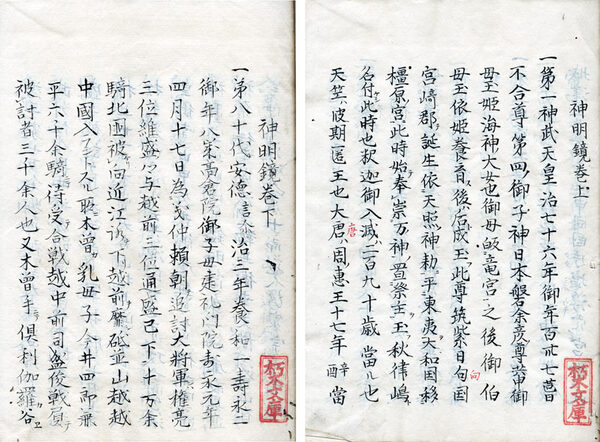 神明鏡巻上
一第一神武天皇治七十六年御年百廿七葺
不合尊ノ第四ノ御子神日本磐余彦尊ト申御
母玉姫海神大女也御母皈竜宮ニ之後御伯
母玉依姫養育ノ後ニ后成玉此尊筑紫日向国
宮崎郡ニ誕生依天照神勅ニ平東夷ヲ大和国移
橿原宮ニ此時始奉崇万神ヲ置祭主玉フ秋律嶋ト
名付此時也釈迦御入滅ノ二百九十歳ニ當ル也
天竺波期匿王也大唐周恵王十七年辛酉當
朽木文庫
神明鏡巻下
一第八十代安徳治三年養和一壽永二
御年八歳高倉院御子母建礼門院寿永元年
四月十七日為義仲頼朝追討大将軍権亮
三位維盛与越前三位通盛已下十万余
騎北国被向近江路下越前砥並山越越
中國入ントスル取木曾ノ乳母子今井四郎兼
平六十余騎待受合戦越中前司盛俊戦負
被討者三十余人也又木曾手倶利伽羅谷
朽木文庫